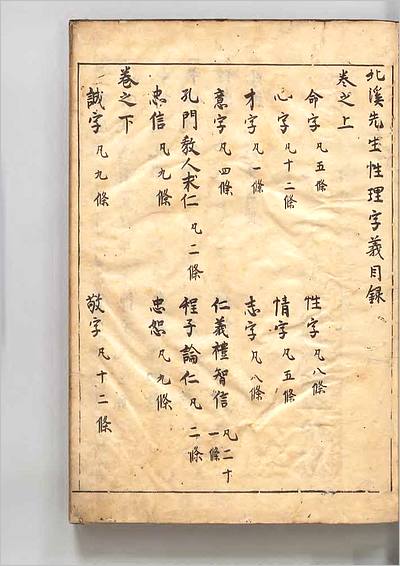 北溪先生性理字義目録
卷之上
命字 凡五條 性字 凡八條
心字 凡十二條 情字 凡五條
才字 凡一條 志字 凡八條
意字 凡四條 仁義禮智信 凡二十一條
孔門教人求仁 凡二條 程子論仁 凡二條
忠信 凡九條 忠恕 凡九條
卷之下
誠字 凡九條 敬字 凡十二條